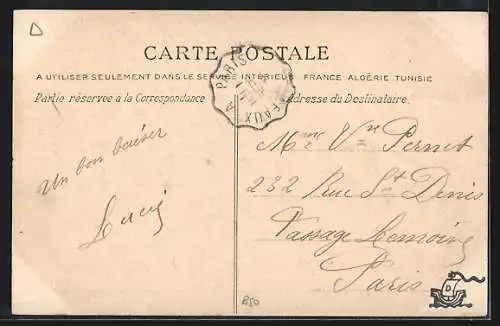 D
CARTE POSTALE
A UTILISER SEULEMENT DANS LE SERVICE INTÉRIEUR FRANCE ALGÉRIE TUNISIE
Partie réservée à la Correspondance
Adresse du Destinataire.
PARIS A EAUX
Un bon baiser
Mme Vve Pernet
232 Rue St Denis
Passage Lemoine
Paris
B50
D